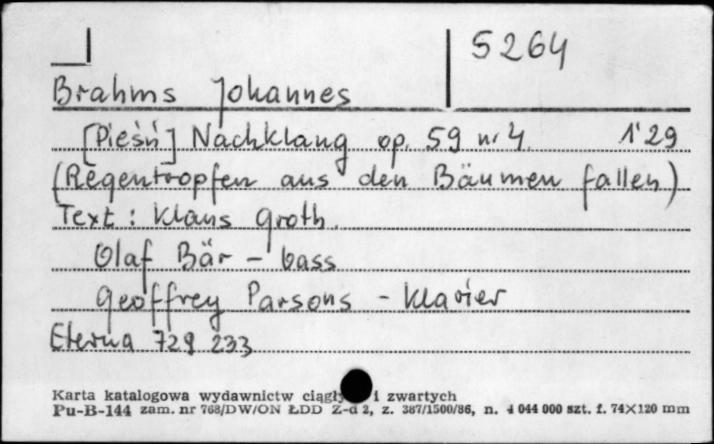 5264
Brahms Johannes
[Pieśń] Nachklang op. 59 nr 4. 1'29
(Regentropfen aus den Bäumen fallen)
Text: Klaus Groth.
Olaf Bär - bass
Geoffrey Parsons - Klavier
Eterna 729 233
Karta katalogowa wydawnictw i zwartych
Pu-B-144 zam. nr 768/DW/ON ŁDD Z-d 2, z. 387/1500/86, n. 4 044 000 szt. f. 74×120 mm